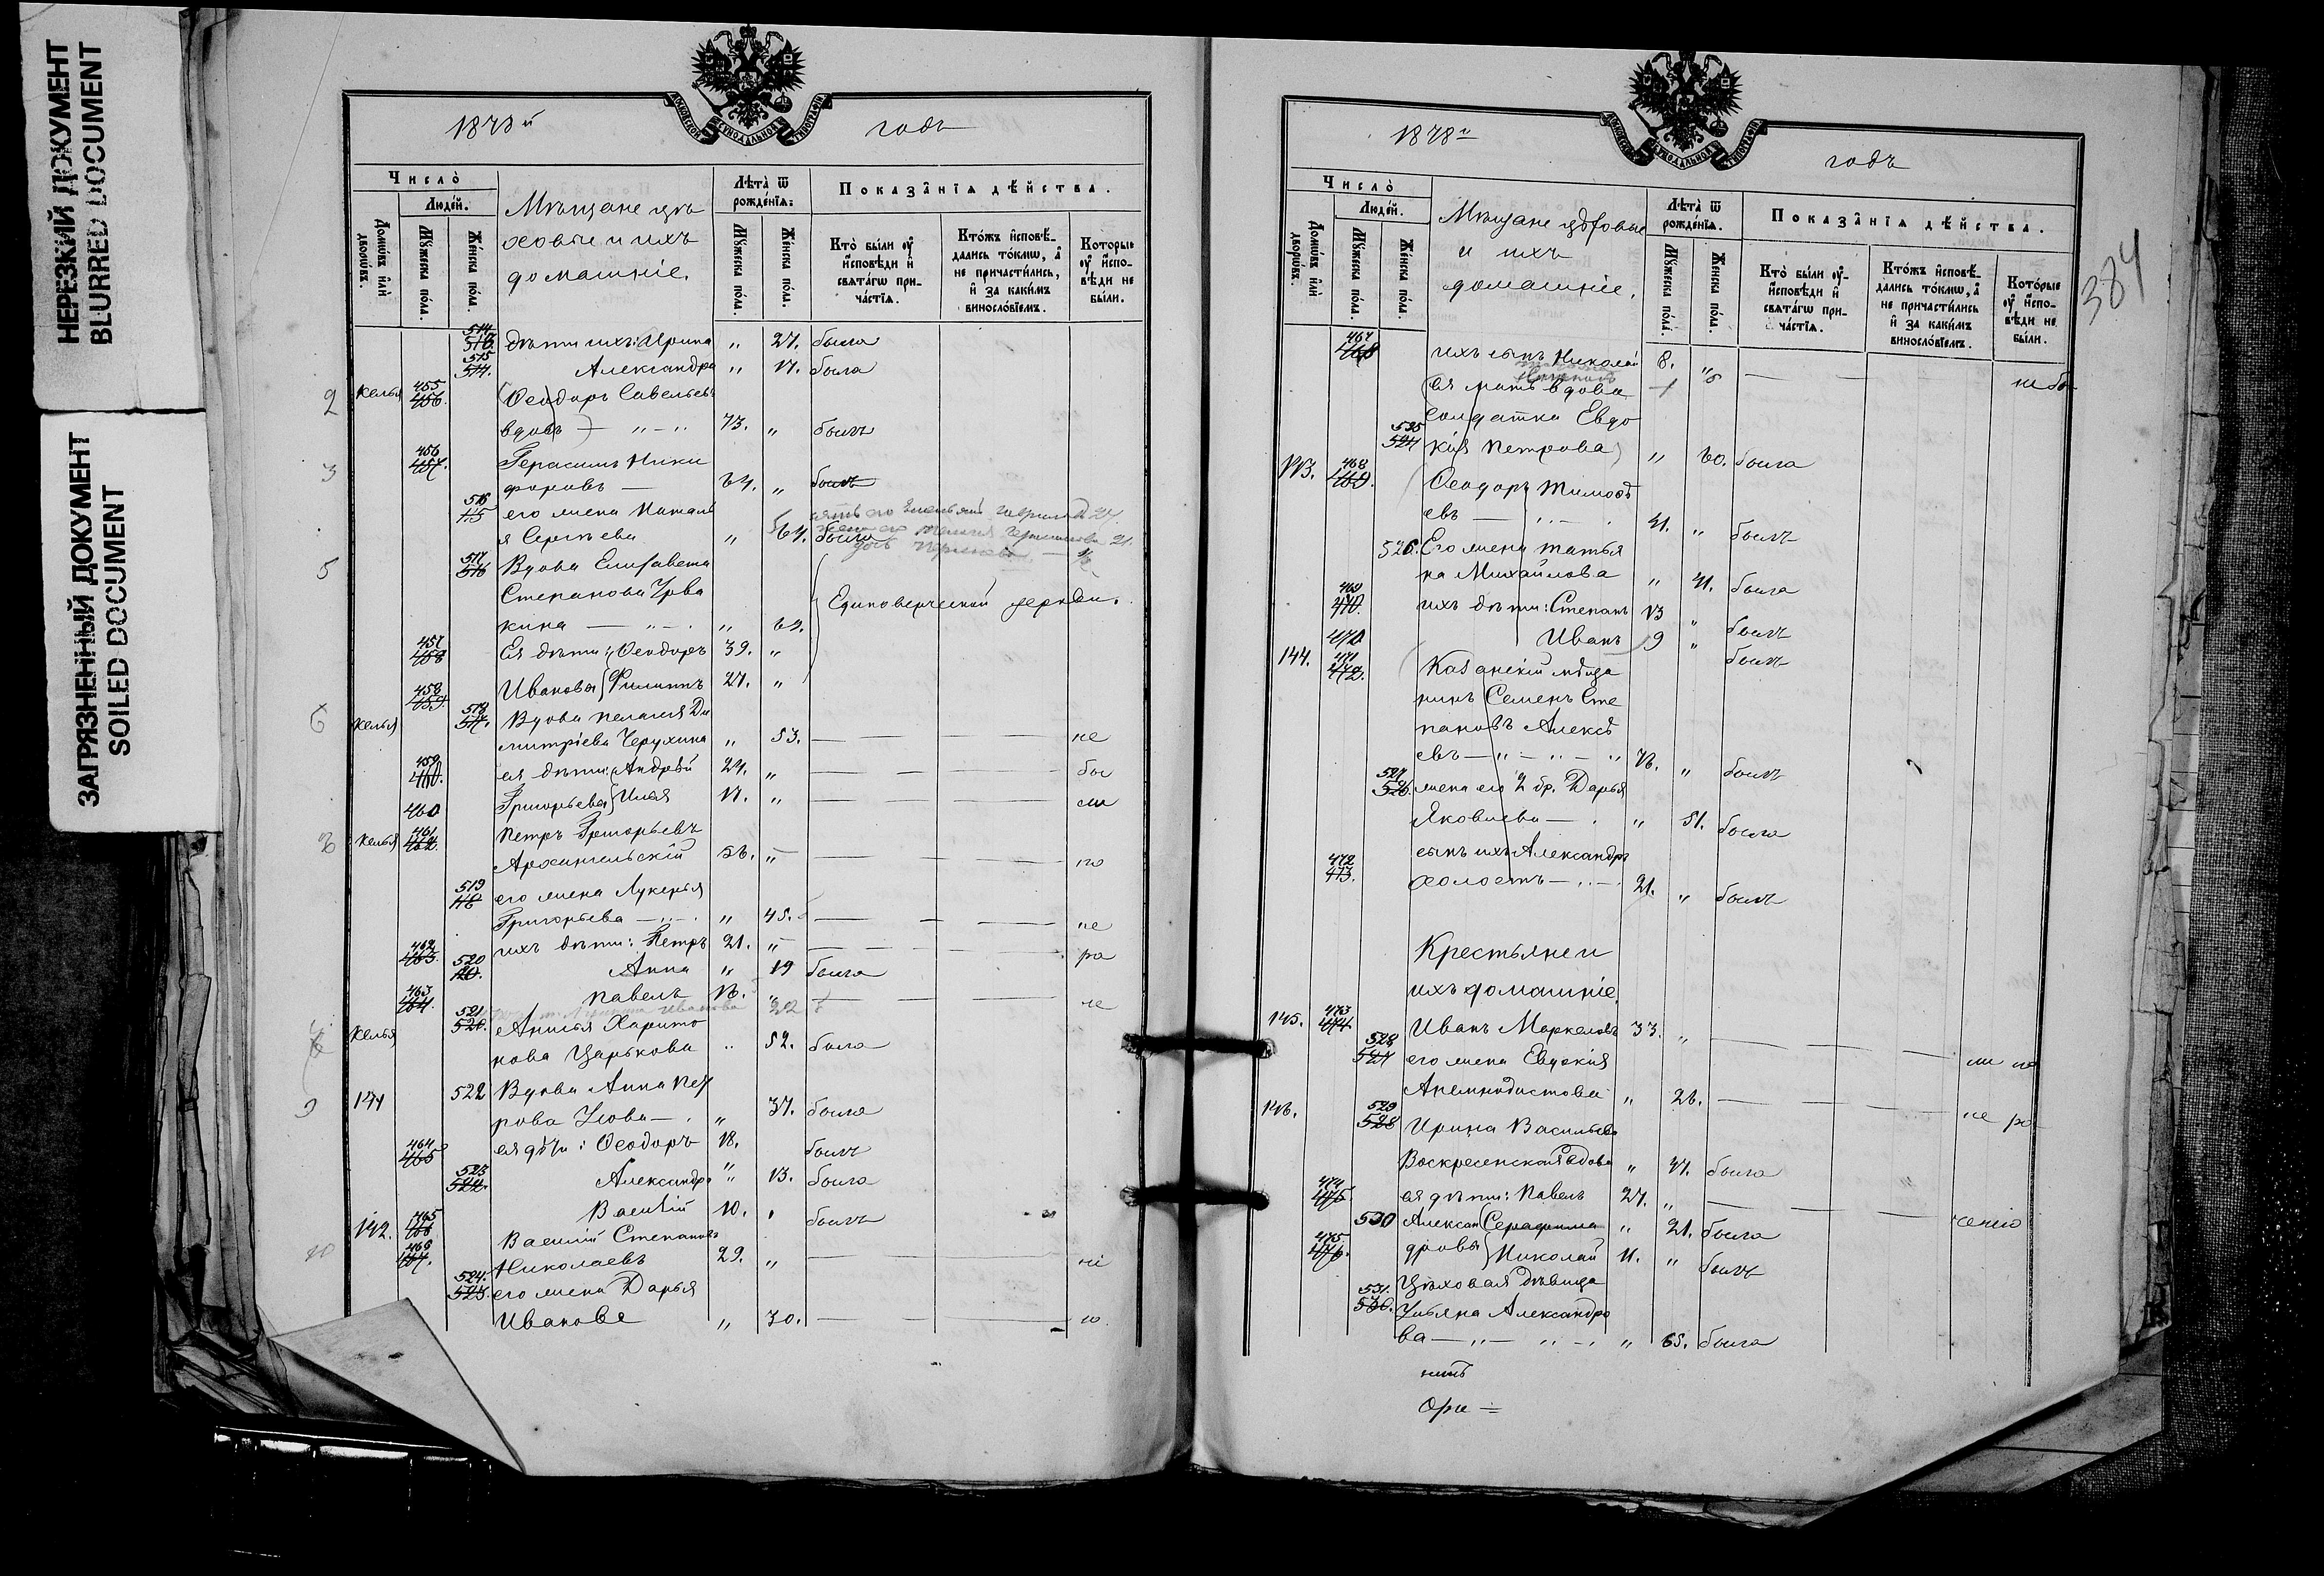 НЕРЕЗКИЙ ДОКУМЕНТ
BLURRED DOCUMENT
ЗАГРЯЗНЕННЫЙ ДОКУМЕНТ
SOILED DOCUMENT
МОСКОВСКОЙ СѴНОДАЛЬНОЙ ТИПОГРАФІИ
1878й годъ
Число̀
Люде́й.
Домѡ́въ и҆лѝ дворѡ́въ.
Мꙋ́жеска по́ла.
Же́нска по́ла.
Мѣщане цѣ
ховые и ихъ
домашніе.
Лѣта̀ ѿ рожде́нїѧ:
Мꙋ́жеска по́ла.
Же́нска по́ла.
Показа̑нїѧ дѣ́йства.
Кто̀ бы́ли ᲂу҆ и҆́сповѣди и҆ свѧта́гѡ при-
ча́стїѧ.
Кто́жъ и҆сповѣ́-
дались то́кмѡ, а҆
не причасти́лись,
и҆ за каки́мъ
винослѡ́вїемъ.
Кото́рые
ᲂу҆ и҆́спо-
вѣди не
бы́ли.
514 дѣти ихъ: Ирина „ 27. была
515 514. Александра „ 17. была
2 келья 455 456. Ѳеодоръ Савельевъ
вдовъ — „ — „ 73. „ былъ
3 456 457. Герасимъ Ники
форовъ — 64. „ былъ
516 515 его жена Наталь
я Сергѣева „ 64. была
5 517 516 Вдова Елисавета
Степанова
кина — „ — „ 64.
Единоверческой церкви.
457 458 Ея дѣти: Ѳеодоръ 39. „
458 459. Ивановы Филиппъ 27. „
6 келья 518 517. Вдова Пелагея Ди
митріева Черухина „ 53. — — — не
459 460. ея дѣти: Андрей 24. „ — — — бы
460 Григорьевы Илья 17. „ — — — ли
келья 461 462. Петръ Григорьевъ
Архангельскій 56. „ — — — по
519 518 его жена Лукерья
Григорьева — „ — „ 45. — — — не
462 463. ихъ дѣти: Петръ 21. „ — — — ра
520 Анна „ 19 была
463 464. Павелъ 16. „ — — — че
Иванова 22
келья 521 520. Анисья Харито
нова Царькова „ 52. была
9 141 522 Вдова Анна Пет
рова — „ 37. была
464 465 ея дѣти: Ѳеодоръ 18. былъ
523 522. Александра „ 13. была
465 466 Василій 10. „ былъ
10 142. 466 467. Василій Степановъ
Николаевъ 29. „ — не
524. 523. его жена Дарья
Иванова „ 30. — — — по
1878й годъ
384
Число̀
Люде́й.
Домѡ́въ и҆лѝ дворѡ́въ.
Мꙋ́жеска по́ла.
Же́нска по́ла.
Мѣщане цѣховые
и ихъ
домашніе.
Лѣта̀ ѿ рожде́нїѧ.
Мꙋ́жеска по́ла.
Же́нска по́ла.
Показа̑нїѧ дѣ́йства.
Кто̀ бы́ли ᲂу҆-
и҆́сповѣди и҆
свѧта́гѡ при-
ча́стїѧ.
Кто́жъ и҆сповѣ́-
дались то́кмѡ, а҆
не причасти́лись
и҆ за каки́мъ
винослѡ́вїемъ.
Кото́рые
ᲂу҆ и҆́спо-
вѣди не
бы́ли.
467 468 ихъ сынъ Николай 8. „ — — не бы
ея мать вдова
солдатка Евдо
525 524 кія Петрова „ 60. была
143. 468 469. Ѳеодоръ Тимоѳѣ
евъ — „ — 41. „ былъ
526. Его жена Татья
на Михайлова „ 41. была
469 470. ихъ дѣти: Степанъ 13 „ былъ
470 Иванъ 9 „ былъ
144. 471 472. Казанскій мѣща
нинъ Семенъ Сте
пановъ Алексѣ
евъ — „ — „ — „ 76. „ былъ
527 526. жена его 2 бр. Дарья
Яковлева — „ 51. была
472 473. сынъ ихъ Александръ
холостъ — „ — 21. „ былъ
Крестьяне и
ихъ домашніе.
145. 473 474 Иванъ Маркеловъ 33. „ — — — ли по
528 527 его жена Евдокія
Анемподистова „ 26. — — — не ра
146. 529 528 Ирина Васильева
Воскресенская вдова „ 47. была
474 475. ея дѣти: Павелъ 27. „ — — ченію
530 Алексан Серафима „ 21. была
475 476. дровы Николай 11. „ былъ
531. 530. Цѣховая дѣвица
Ульяна Александро
ва — „ — „ — „ 65. была